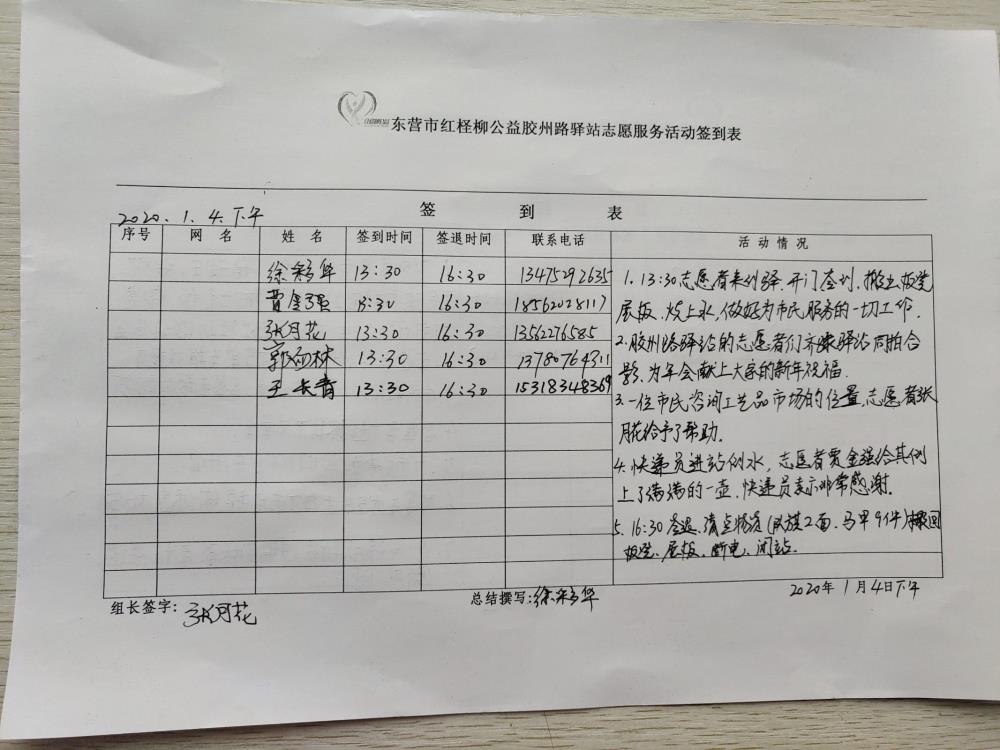 东营市红柽柳公益胶州路驿站志愿服务活动签到表
签 到 表
2020.1.4.下午
序号 网名 姓名 签到时间 签退时间 联系电话 活动情况
徐彩华 13:30 16:30 13475292635
贾金强 13:30 16:30 18562028117
张月花 13:30 16:30 1356276585
郭 林 13:30 16:30 13780764311
王长青 13:30 16:30 15318348369
1.13:30志愿者来到驿.开门签到.搬出板凳
展板.烧上水,做好为市民服务的一切工作.
2.胶州路驿站的志愿者们齐聚驿站同拍合
影.为年会献上大家的新年祝福.
3.一位市民咨询工艺品市场的位置,志愿者张
月花给予了帮助.
4.快递员进站倒水,志愿者贾金强给其倒
上了满满的一壶.快递员表示非常感谢.
5.16:30签退.清点物资(队旗2面.马甲9件)搬回
板凳、展板、断电、闭站.
组长签字:张月花
总结撰写:徐彩华
2020年1月4日下午